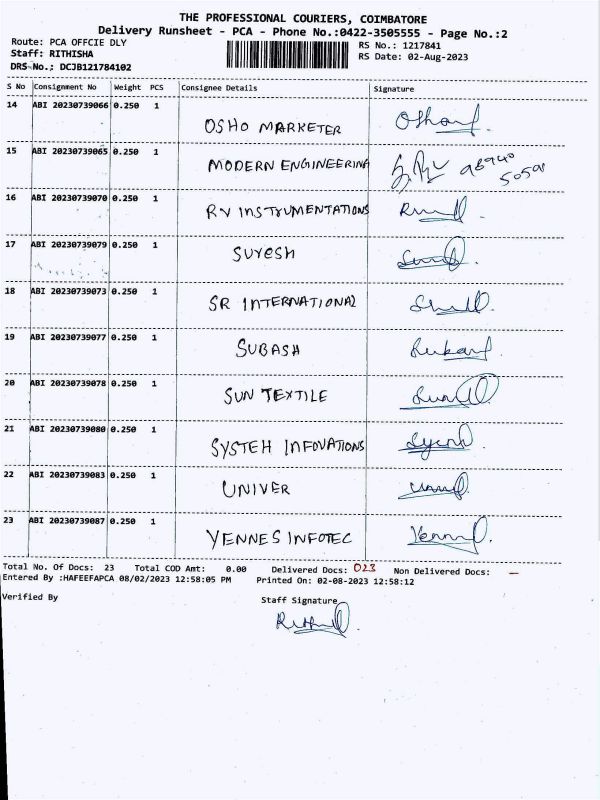 THE PROFESSIONAL COURIERS, COIMBATORE
Delivery Runsheet - PCA - Phone No.:0422-3505555 - Page No.:2
Route: PCA OFFCIE DLY RS No.: 1217841
Staff: RITHISHA RS Date: 02-Aug-2023
DRS No.; DCJB121784102
S No Consignment No Weight PCS Consignee Details Signature
14 ABI 20230739066 0.250 1
OSHO MARKETER
15 ABI 20230739065 0.250 1
MODERN ENGINEERING
16 ABI 20230739070 0.250 1
RV INSTRUMENTATIONS
17 ABI 20230739079 0.250 1
SUresH
18 ABI 20230739073 0.250 1
SR INTERNATIONAL
19 ABI 20230739077 0.250 1
SUBASH
20 ABI 20230739078 0.250 1
SUN TEXTILE
21 ABI 20230739080 0.250 1
SYSTEH INFOVATIONS
22 ABI 20230739083 0.250 1
UNIVER
23 ABI 20230739087 0.250 1
YENNES INFOTEC
Total No. Of Docs: 23 Total COD Amt: 0.00 Delivered Docs: 023 Non Delivered Docs: –
Entered By :HAFEEFAPCA 08/02/2023 12:58:05 PM Printed On: 02-08-2023 12:58:12
Verified By Staff Signature